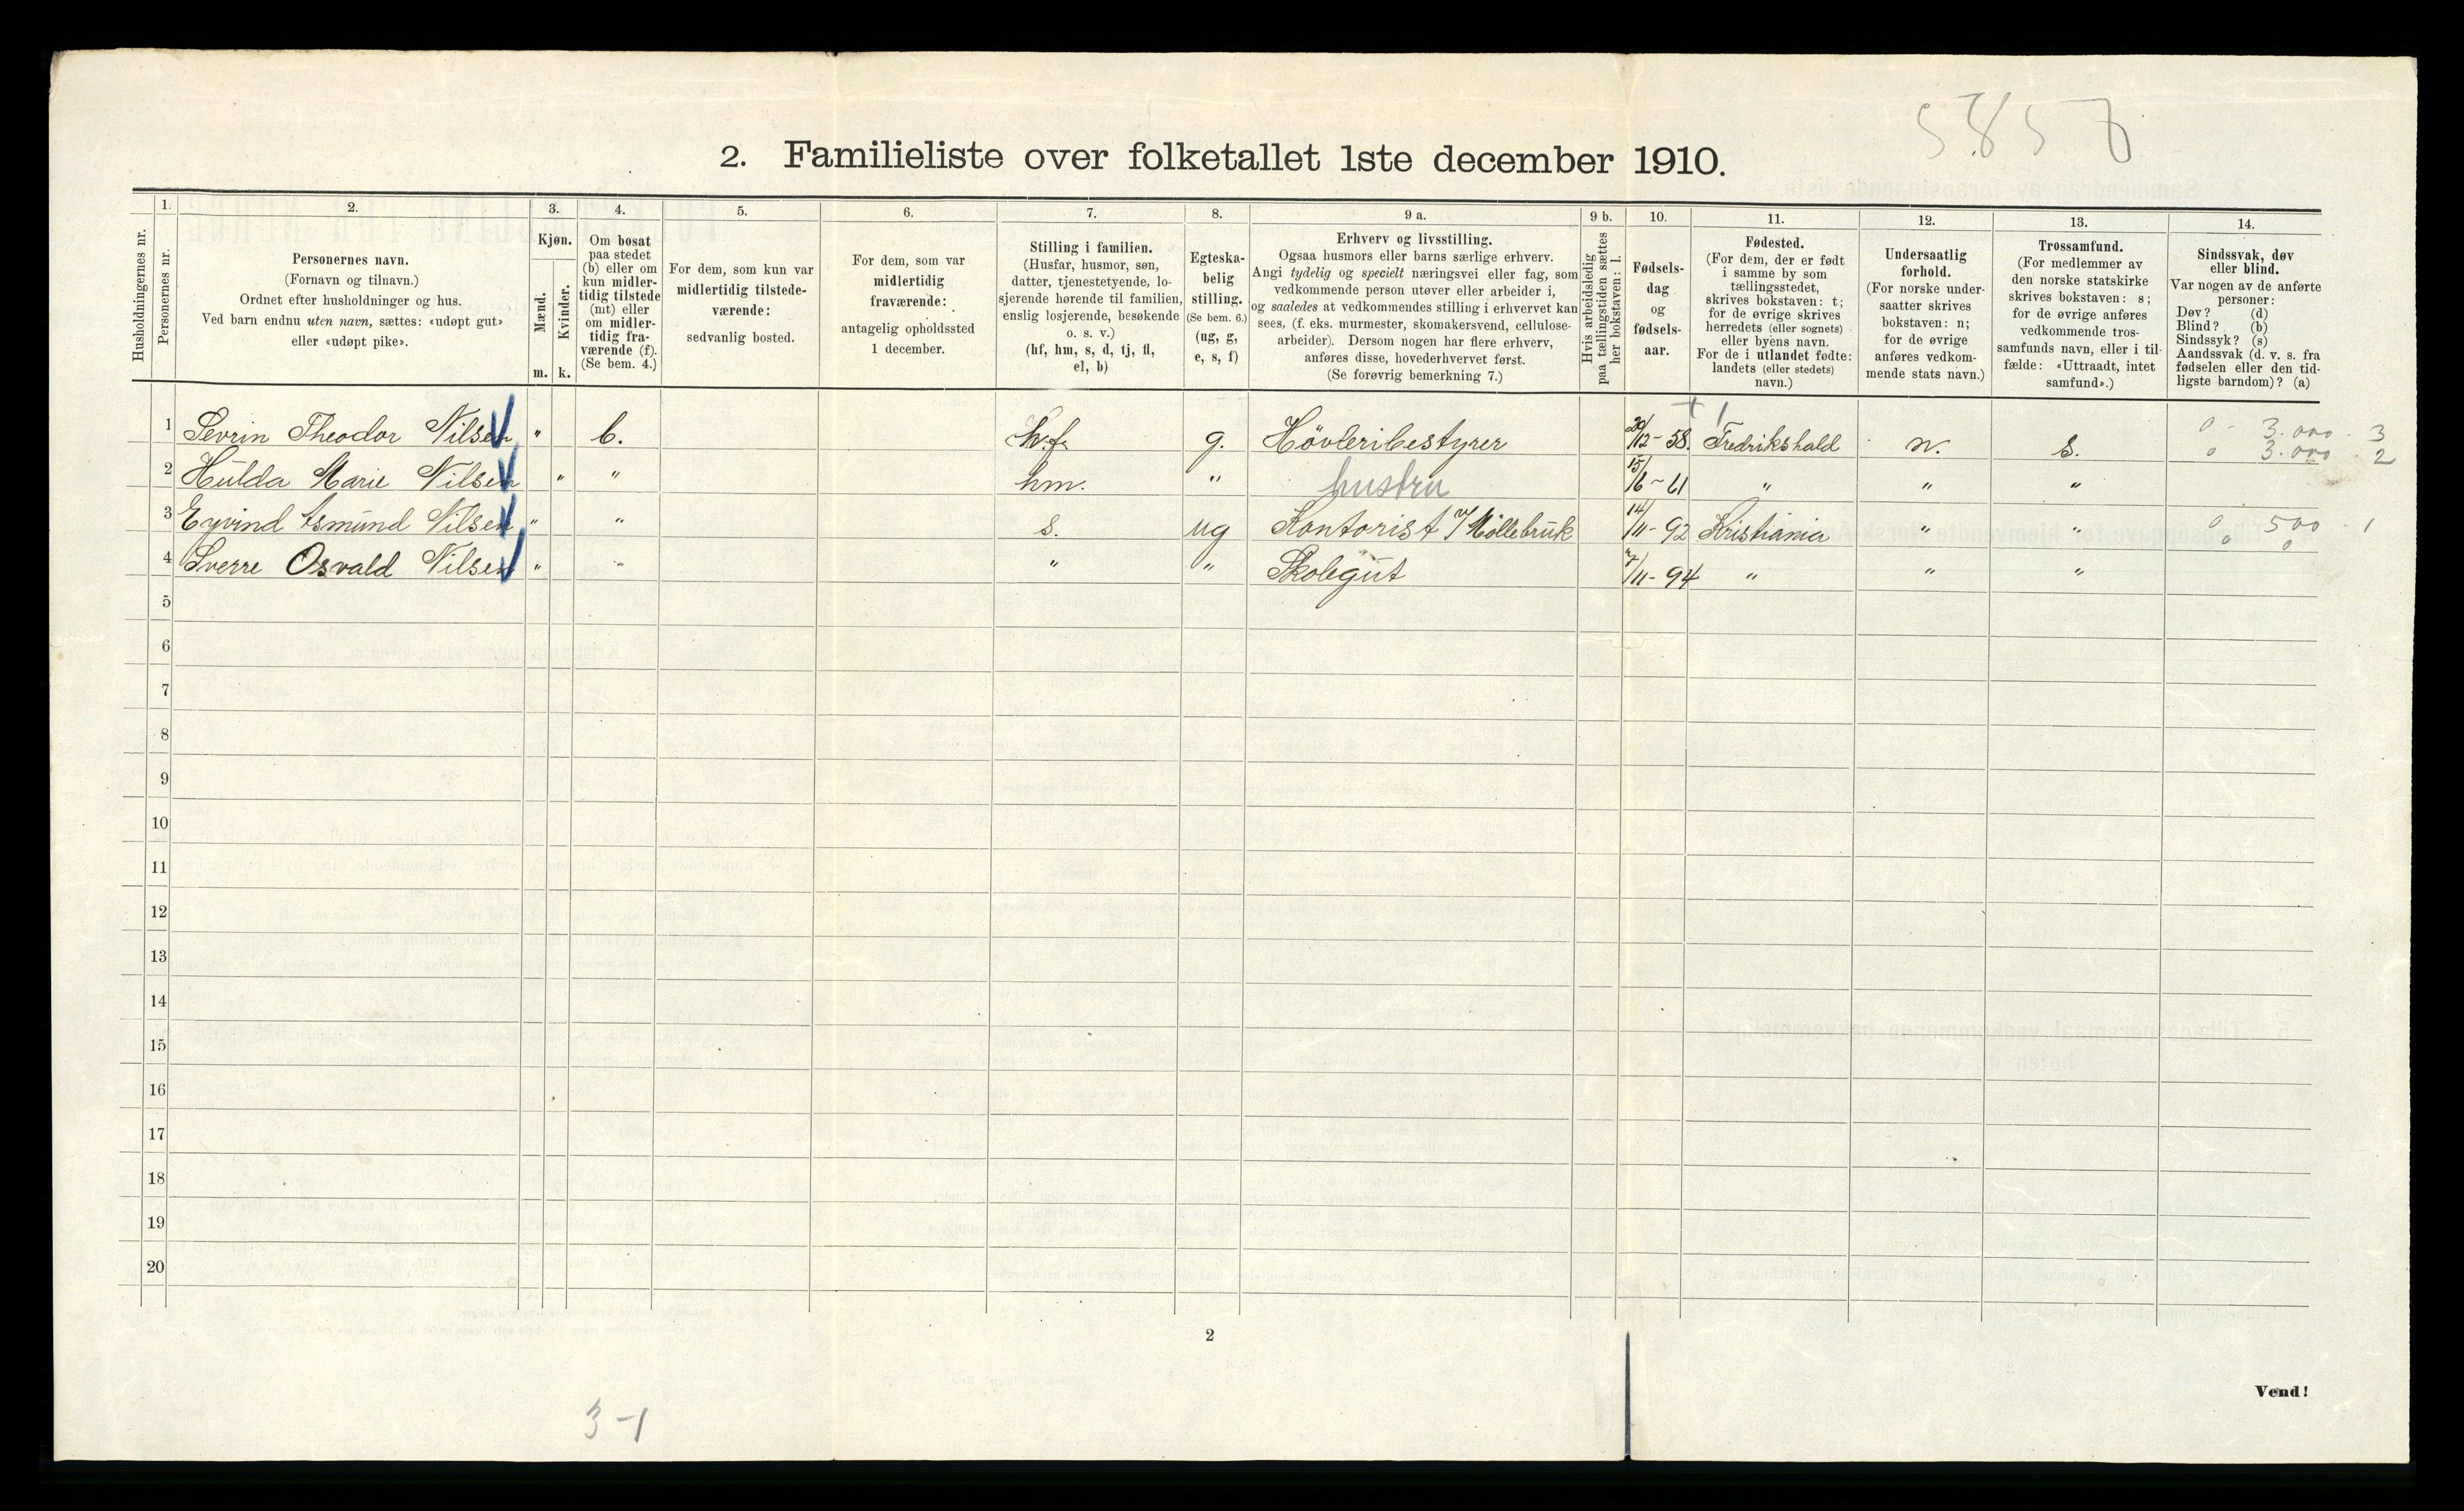 5858
2. Familieliste over folketallet 1ste december 1910.
Husholdningernes nr.
1.
Personernes nr.
2.
Personernes navn.
(Fornavn og tilnavn.)
Ordnet efter husholdninger og hus.
Ved barn endnu uten navn, sættes: «udøpt gut»
eller «udøpt pike».
3.
Kjøn.
Mænd.
Kvinder.
m. k.
4.
Om bosat
paa stedet
(b) eller om
kun midler-
tidig tilstede
(mt) eller
om midler-
tidig fra-
værende (f).
(Se bem. 4.)
5.
For dem, som kun var
midlertidig tilstede-
værende:
sedvanlig bosted.
6.
For dem, som var
midlertidig
fraværende:
antagelig opholdssted
1 december.
7.
Stilling i familien.
(Husfar, husmor, søn,
datter, tjenestetyende, lo-
sjerende hørende til familien,
enslig losjerende, besøkende
o. s. v.)
(hf, hm, s, d, tj, fl,
el, b)
8.
Egteska-
belig
stilling.
(Se bem. 6.)
(ug, g,
e, s, f)
9 a.
Erhverv og livsstilling.
Ogsaa husmors eller barns særlige erhverv.
Angi tydelig og specielt næringsvei eller fag, som
vedkommende person utøver eller arbeider i,
og saaledes at vedkommendes stilling i erhvervet kan
sees, (f. eks. murmester, skomakersvend, cellulose-
arbeider). Dersom nogen har flere erhverv,
anføres disse, hovederhvervet først.
(Se forøvrig bemerkning 7.)
9 b.
Hvis arbeidsledig
paa tællingstiden sættes
her bokstaven: l.
10.
Fødsels-
dag
og
fødsels-
aar.
11.
Fødested.
(For dem, der er født
i samme by som
tællingsstedet,
skrives bokstaven: t;
for de øvrige skrives
herredets (eller sognets)
eller byens navn.
For de i utlandet fødte:
landets (eller stedets)
navn.)
12.
Undersaatlig
forhold.
(For norske under-
saatter skrives
bokstaven: n;
for de øvrige
anføres vedkom-
mende stats navn.)
13.
Trossamfund.
(For medlemmer av
den norske statskirke
skrives bokstaven: s;
for de øvrige anføres
vedkommende tros-
samfunds navn, eller i til-
fælde: «Uttraadt, intet
samfund».)
14.
Sindssvak, døv
eller blind.
Var nogen av de anførte
personer:
Døv? (d)
Blind? (b)
Sindssyk? (s)
Aandssvak (d. v. s. fra
fødselen eller den tid-
ligste barndom)? (a)
1 Sevrin Theodor Nilsen " b. h.f. g. Høvleribestyrer 20/12-58. Fredrikshald n. s. 0 - 3.000 - 3
2 Hulda Marie Nilsen " " hm. " hustru 15/6-61 " " " 0 3.000 - 2
3 Eyvind Asmund Nilsen " " s. ug Kontorist v/Møllebruk 14/11-92 Kristiania " " 0 500 - 1
4 Sverre Osvald Nilsen " " " " Skolegut 7/11-94 " " " 0 0
5
6
7
8
9
10
11
12
13
14
15
16
17
18
19
20
2
Vend!
3-1